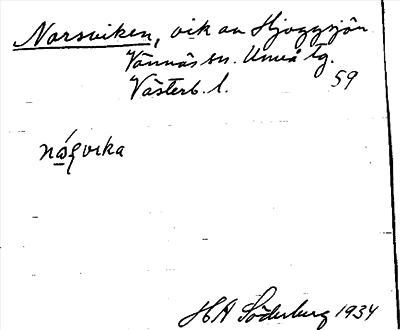 Norsviken, vik av Hjoggsjön
Vännäs sn. Umeå tg.
Västerb. l. 59
nɷ́ʂvika
HA Söderberg 1934